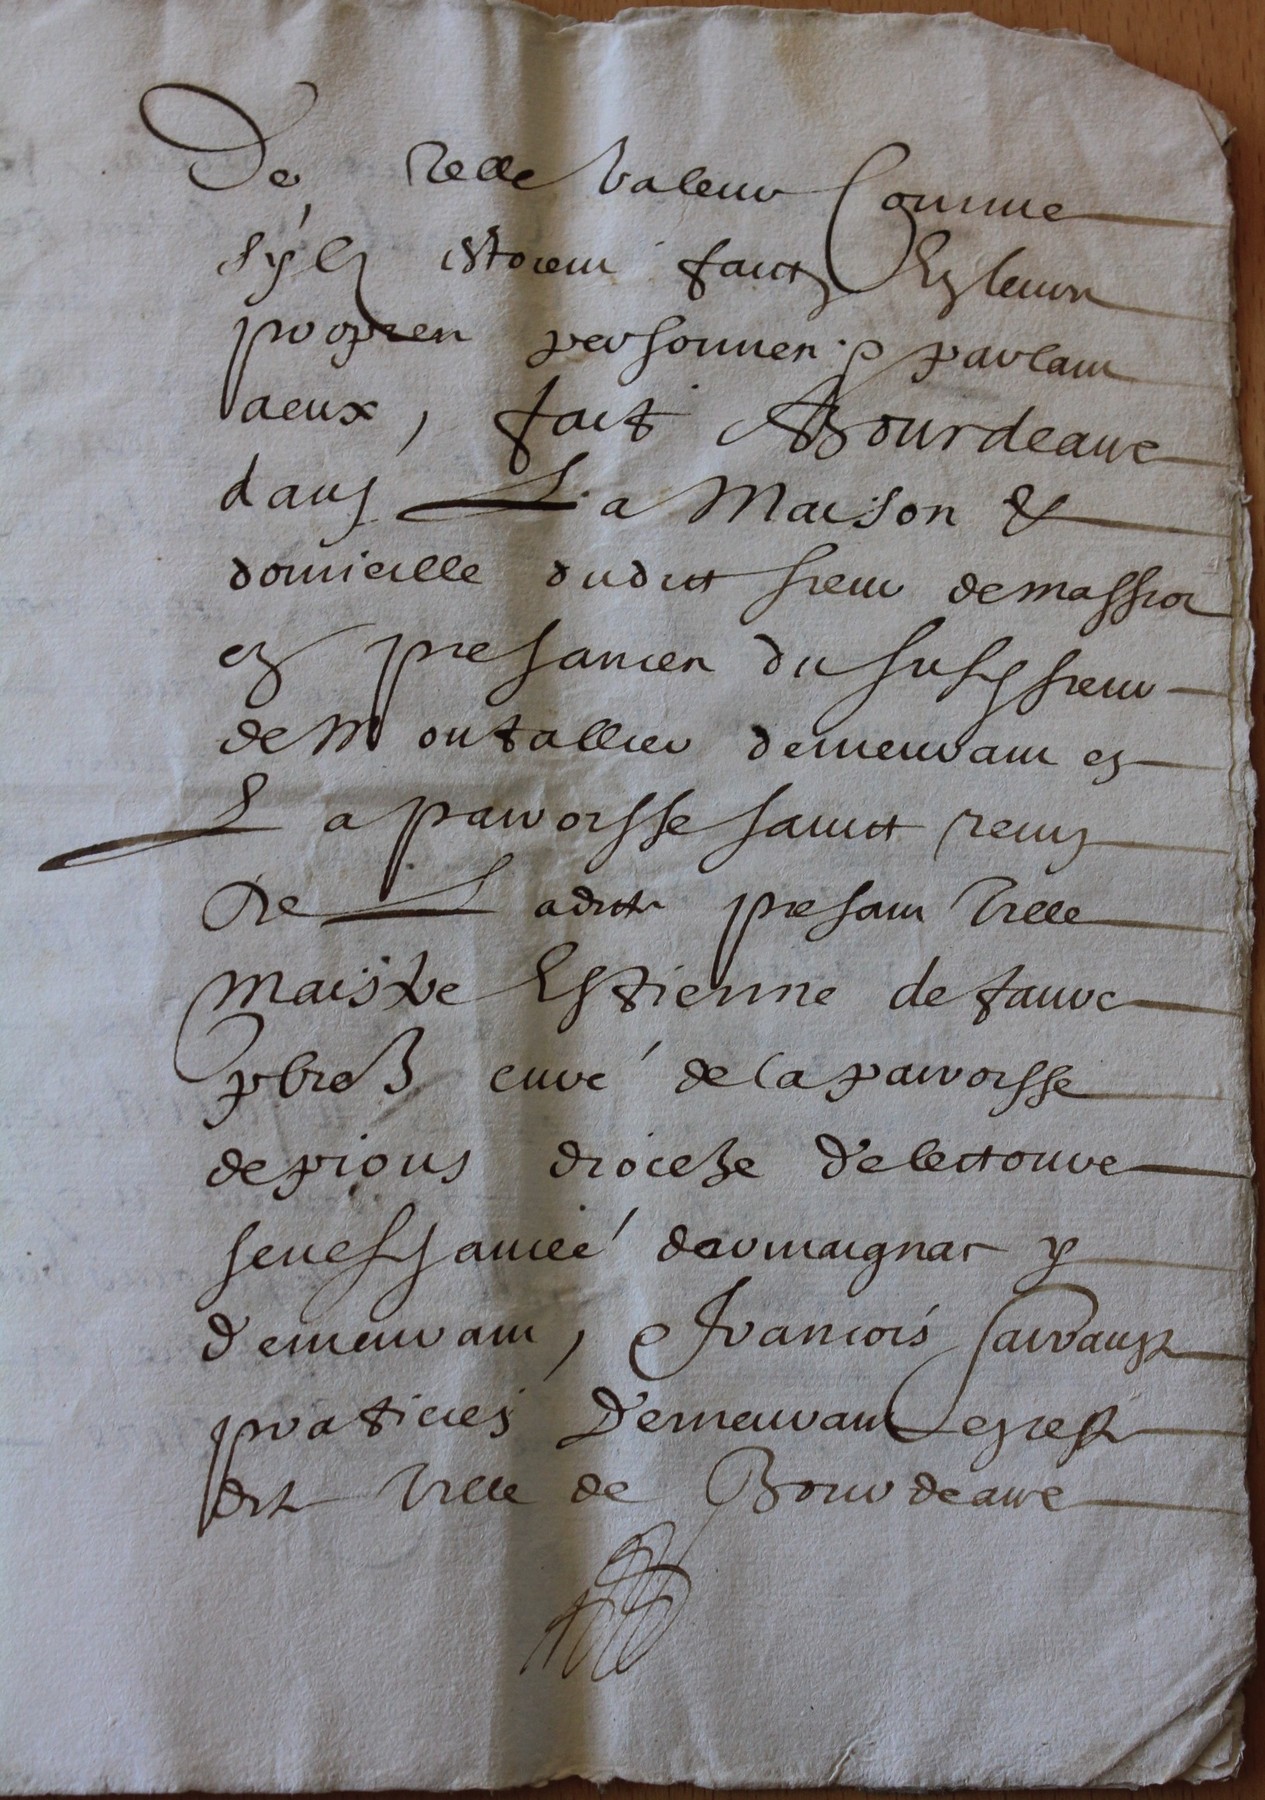 De telle valeur Comme
s'ylz estoient faictz En leurs
propres personnes & parlant
a eux, fait A Bourdeaux
dans La Maison &
domicille dudict sieur de massiot
en presances du susd sieur
de Montallier demeurant en
La parroisse sainct remy
De Ladicte presant ville
Maistre Estienne de faure
pbre & curé de la parroisse
de pious dioceze de lectoure
seneschaucée darmaignac y
demeurant, & francois
praticien Demeurant en ces
dit ville de Bourdeaux